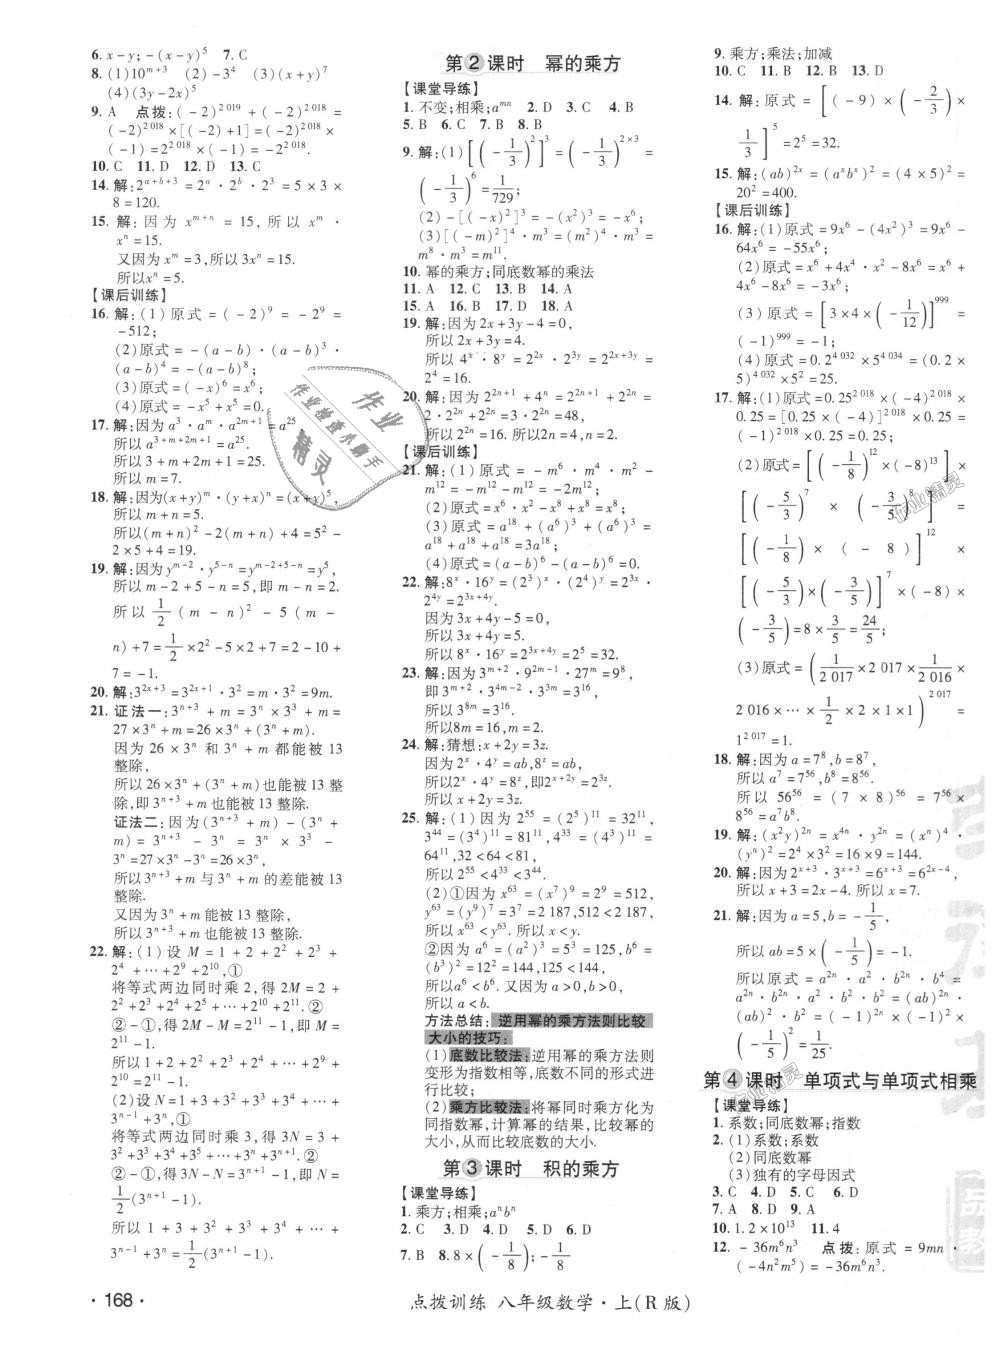 6. x－y;－(x－y)⁵　7. C
8. (1)10^{m+3}　(2)－3⁴　(3)(x＋y)⁷
(4)(3y－2x)⁵
9. A　点拨:(－2)^{2 019}＋(－2)^{2 018}＝
(－2)^{2 018}×[(－2)＋1]＝(－2)^{2 018}×
(－1)＝2^{2 018}×(－1)＝－2^{2 018}.
10. C　11. D　12. D　13. C
14. 解:2^{a+b+3}＝2^a·2^b·2³＝5×3×
8＝120.
15. 解:因为 x^{m+n}＝15,所以 x^m·
x^n＝15.
又因为 x^m＝3,所以3x^n＝15.
所以x^n＝5.
【课后训练】
16. 解:(1)原式＝(－2)⁹＝－2⁹＝
－512;
(2)原式＝－(a－b)·(a－b)³·
(a－b)⁴＝－(a－b)⁸;
(3)原式＝(－x)⁶＝x⁶;
(4)原式＝－x⁵＋x⁵＝0.
17. 解:因为a³·a^m·a^{2m+1}＝a^{25},
所以a^{3+m+2m+1}＝a^{25}.
所以3＋m＋2m＋1＝25.
所以m＝7.
18. 解:因为(x＋y)^m·(y＋x)^n＝(x＋y)⁵,
所以m＋n＝5.
所以(m＋n)²－2(m＋n)＋4＝5²－
2×5＋4＝19.
19. 解:因为y^{m-2}·y^{5-n}＝y^{m-2+5-n}＝y⁵,
所以m－2＋5－n＝5,即m－n＝2.
所以 \frac{1}{2}(m－n)²－5(m－
n)＋7＝\frac{1}{2}×2²－5×2＋7＝2－10＋
7＝－1.
20. 解:3^{2x+3}＝3^{2x+1}·3²＝m·3²＝9m.
21. 证法一:3^{n+3}＋m＝3^n×3³＋m＝
27×3^n＋m＝26×3^n＋(3^n＋m).
因为 26×3^n 和 3^n＋m 都能被 13
整除,
所以26×3^n＋(3^n＋m)也能被13整
除,即3^{n+3}＋m也能被13整除.
证法二:因为(3^{n+3}＋m)－(3^n＋
m)＝3^{n+3}－3^n＝3^n×3³－
3^n＝27×3^n－3^n＝26×3^n,
所以3^{n+3}＋m与3^n＋m的差能被13
整除.
又因为3^n＋m能被13整除,
所以3^{n+3}＋m也能被13整除.
22. 解:(1)设 M＝1＋2＋2²＋2³＋
2⁴＋…＋2⁹＋2^{10},①
将等式两边同时乘2,得2M＝2＋
2²＋2³＋2⁴＋2⁵＋…＋2^{10}＋2^{11}.②
②－①,得2M－M＝2^{11}－1,即M＝
2^{11}－1.
所以1＋2＋2²＋2³＋2⁴＋…＋
2^{10}＝2^{11}－1.
(2)设N＝1＋3＋3²＋3³＋3⁴＋…＋
3^{n-1}＋3^n,①
将等式两边同时乘3,得3N＝3＋
3²＋3³＋3⁴＋3⁵＋…＋3^n＋3^{n+1}.②
②－①,得3N－N＝3^{n+1}－1,即N＝
\frac{1}{2}(3^{n+1}－1).
所以 1＋3＋3²＋3³＋3⁴＋…＋
3^{n-1}＋3^n＝\frac{1}{2}(3^{n+1}－1).
·168·
第2课时　幂的乘方
【课堂导练】
1. 不变;相乘;a^{mn}　2. D　3. C　4. B
5. B　6. C　7. B　8. B
9. 解:(1)[(－\frac{1}{3})²]³＝(－\frac{1}{3})^{2×3}＝
(－\frac{1}{3})⁶＝\frac{1}{729};
(2)－[(－x)²]³＝－(x²)³＝－x⁶;
(3)[(－m)²]⁴·m³＝(m²)⁴·m³＝
m⁸·m³＝m^{11}.
10. 幂的乘方;同底数幂的乘法
11. A　12. C　13. B　14. A
15. A　16. B　17. D　18. A
19. 解:因为2x＋3y－4＝0,
所以2x＋3y＝4.
所以4^x·8^y＝2^{2x}·2^{3y}＝2^{2x+3y}＝
2⁴＝16.
20. 解:因为2^{2n+1}＋4^n＝2^{2n+1}＋2^{2n}＝
2·2^{2n}＋2^{2n}＝3×2^{2n}＝48,
所以2^{2n}＝16. 所以2n＝4,n＝2.
【课后训练】
21. 解:(1)原式＝－m⁶·m⁴·m²－
m^{12}＝－m^{12}－m^{12}＝－2m^{12};
(2)原式＝x⁶·x²－x⁸＋x⁸＝x⁸;
(3)原式＝a^{18}＋(a⁶)³＋(a⁶)³＝
a^{18}＋a^{18}＋a^{18}＝3a^{18};
(4)原式＝(a－b)⁶－(a－b)⁶＝0.
22. 解:8^x·16^y＝(2³)^x·(2⁴)^y＝2^{3x}·
2^{4y}＝2^{3x+4y}.
因为3x＋4y－5＝0,
所以3x＋4y＝5.
所以8^x·16^y＝2^{3x+4y}＝2⁵＝32.
23. 解:因为3^{m+2}·9^{2m-1}·27^m＝9⁸,
即3^{m+2}·3^{4m-2}·3^{3m}＝3^{16},
所以3^{8m}＝3^{16}.
所以8m＝16,m＝2.
24. 解:猜想:x＋2y＝3z.
因为2^x·4^y＝ab,8^z＝ab,
所以2^x·4^y＝8^z,即2^{x+2y}＝2^{3z}.
所以x＋2y＝3z.
25. 解:(1)因为2^{55}＝(2⁵)^{11}＝32^{11},
3^{44}＝(3⁴)^{11}＝81^{11},4^{33}＝(4³)^{11}＝
64^{11},32<64<81,
所以2^{55}<4^{33}<3^{44}.
(2)①因为x^{63}＝(x⁷)⁹＝2⁹＝512,
y^{63}＝(y⁹)⁷＝3⁷＝2 187,512<2 187,
所以x^{63}<y^{63}. 所以x<y.
②因为a⁶＝(a²)³＝5³＝125,b⁶＝
(b³)²＝12²＝144,125<144,
所以a⁶<b⁶. 又因为a>0,b>0,
所以a<b.
方法总结:逆用幂的乘方法则比较
大小的技巧:
(1)底数比较法:逆用幂的乘方法则
变形为指数相等,底数不同的形式进
行比较;
(2)乘方比较法:将幂同时乘方化为
同指数幂,计算幂的结果,比较幂的
大小,从而比较底数的大小.
第3课时　积的乘方
【课堂导练】
1. 乘方;相乘;a^n b^n
2. C　3. D　4. D　5. D　6. D
7. B　8. 8×(－\frac{1}{8});－\frac{1}{8}
点拨训练 八年级数学·上(R版)
9. 乘方;乘法;加减
10. C　11. B　12. B　13. D
14. 解:原式＝[(－9)×(－\frac{2}{3})×
\frac{1}{3}]⁵＝2⁵＝32.
15. 解:(ab)^{2x}＝(a^x b^x)²＝(4×5)²＝
20²＝400.
【课后训练】
16. 解:(1)原式＝9x⁶－(4x²)³＝9x⁶－
64x⁶＝－55x⁶;
(2)原式＝x⁶＋4x⁴·x²－8x⁶＝x⁶＋
4x⁶－8x⁶＝－3x⁶;
(3)原式＝[3×4×(－\frac{1}{12})]^{999}＝
(－1)^{999}＝－1;
(4)原式＝0.2^{4 032}×5^{4 034}＝(0.2×
5)^{4 032}×5²＝25.
17. 解:(1)原式＝0.25^{2 018}×(－4)^{2 018}×
0.25＝[0.25×(－4)]^{2 018}×0.25＝
(－1)^{2 018}×0.25＝0.25;
(2)原式＝[(－\frac{1}{8})^{12}×(－8)^{13}]×
[(－\frac{5}{3})⁷×(－\frac{3}{5})⁸]＝
[(－\frac{1}{8})×(－8)]^{12}×
[(－\frac{5}{3})×(－\frac{3}{5})]⁷×(－8)×
(－\frac{3}{5})＝8×\frac{3}{5}＝\frac{24}{5};
(3)原式＝(\frac{1}{2 017}×2 017×\frac{1}{2 016}×
2 016×…×\frac{1}{2}×2×1×1)^{2 017}＝
1^{2 017}＝1.
18. 解:因为a＝7⁸,b＝8⁷,
所以a⁷＝7^{56},b⁸＝8^{56}.
所以56^{56}＝(7×8)^{56}＝7^{56}×
8^{56}＝a⁷b⁸.
19. 解:(x²y)^{2n}＝x^{4n}·y^{2n}＝(x^n)⁴·
(y^n)²＝2⁴×3²＝16×9＝144.
20. 解:因为2^{x+3}·3^{x+3}＝6^{x+3}＝6^{2x-4},
所以x＋3＝2x－4. 所以x＝7.
21. 解:因为a＝5,b＝－\frac{1}{5},
所以ab＝5×(－\frac{1}{5})＝－1.
所以原式＝a^{2n}·a²·b^{2n}·b⁴＝
a^{2n}·b^{2n}·a²·b²·b²＝(ab)^{2n}·
(ab)²·b²＝(－1)^{2n}×(－1)²×
(－\frac{1}{5})²＝\frac{1}{25}.
第4课时　单项式与单项式相乘
【课堂导练】
1. 系数;同底数幂;指数
2. (1)系数;系数
(2)同底数幂
(3)独有的字母因式
3. C　4. D　5. C　6. D
7. A　8. D　9. A
10. 1.2×10^{13}　11. 4
12. －36m⁶n³　点拨:原式＝9mn·
(－4n²m⁵)＝－36m⁶n³.
作业
作业检查小助手
精灵
作业精灵
作业精灵